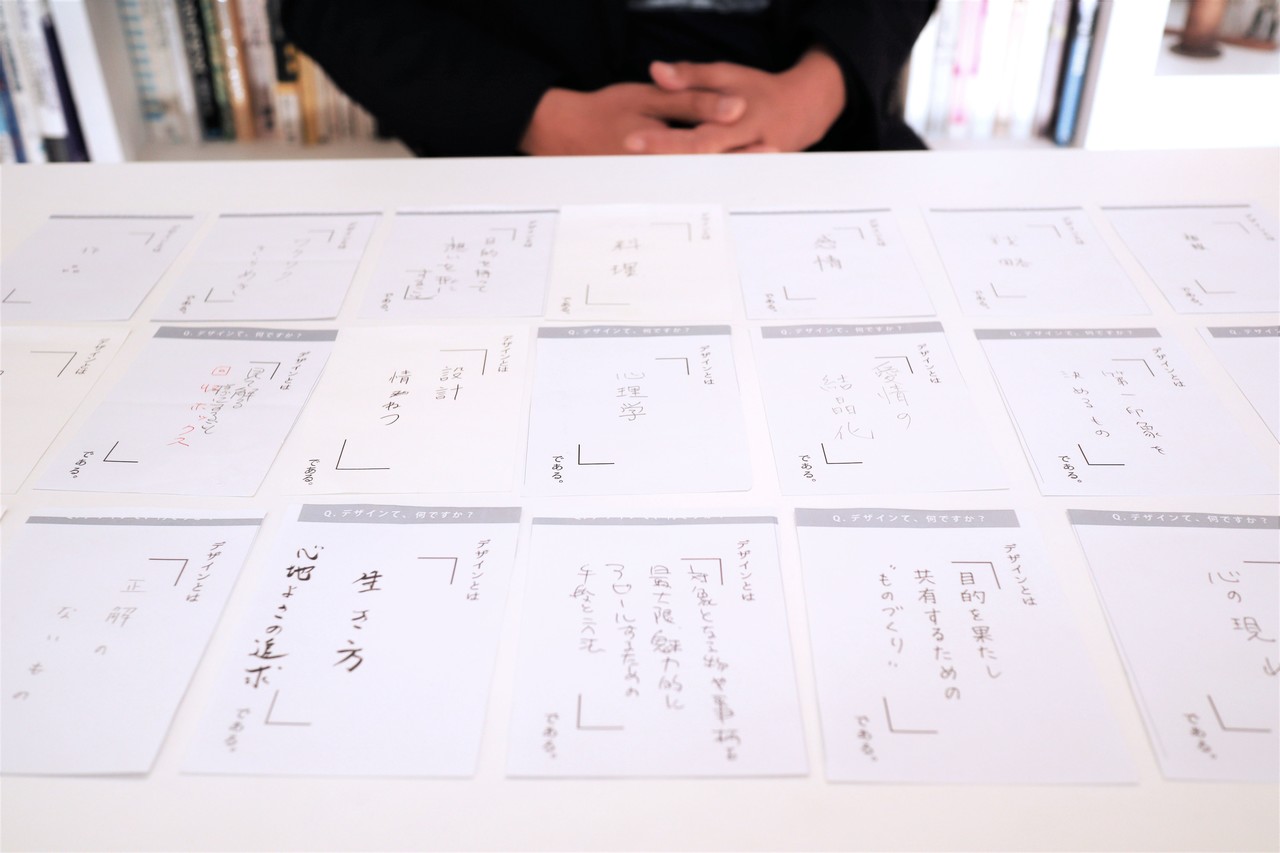 デザインとは
デザインとは
デザインとは
目的を持って
デザインとは
料理
である。
デザインとは
感情
である。
デザインとは
戦略
である。
デザインとは
である。
デザインとは
Q. デザインて、何ですか？
デザインとは
である。
デザインとは
設計
である。
Q. デザインて、何ですか？
デザインとは
心理学
である。
Q. デザインて、何ですか？
デザインとは
愛情の
結晶化
である。
Q. デザインて、何ですか？
デザインとは
第一印象を
決めるもの
である。
Q. デザイン
デザインとは
正解の
ないもの
Q. デザインて、何ですか？
デザインとは
生き方
心地よさの追求
である。
デザインとは
対象となる物や事柄を
最大限、魅力的に
アピールするための
手段と方法
である。
Q. デザインて、何ですか？
デザインとは
目的を果たし
共有するための
"ものづくり"
である。
Q. デザインて、何ですか？
心の現
である。